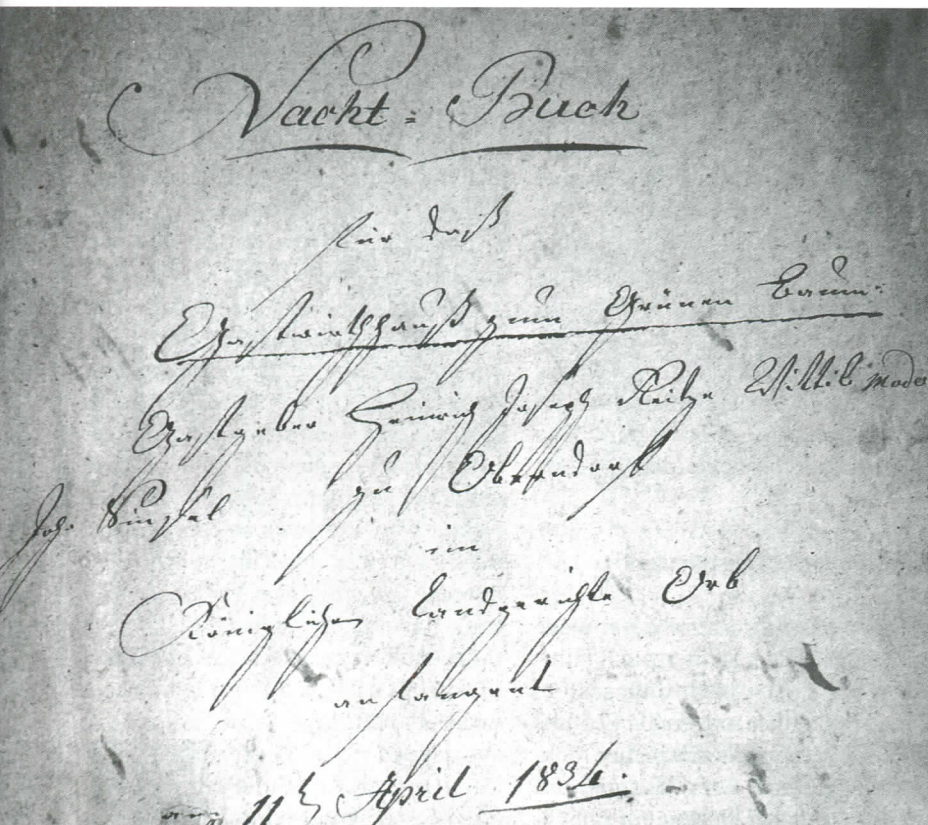 Nacht = Buch
für daß
Gastwirthhauß zum Grünen Baum.
Gastgeber Heinrich Joseph Reitze Wittib modo
Joh. Sinsel zu Oberndorf
im
Königlichen Landgerichte Orb
anfangent
am 11ten April 1834.